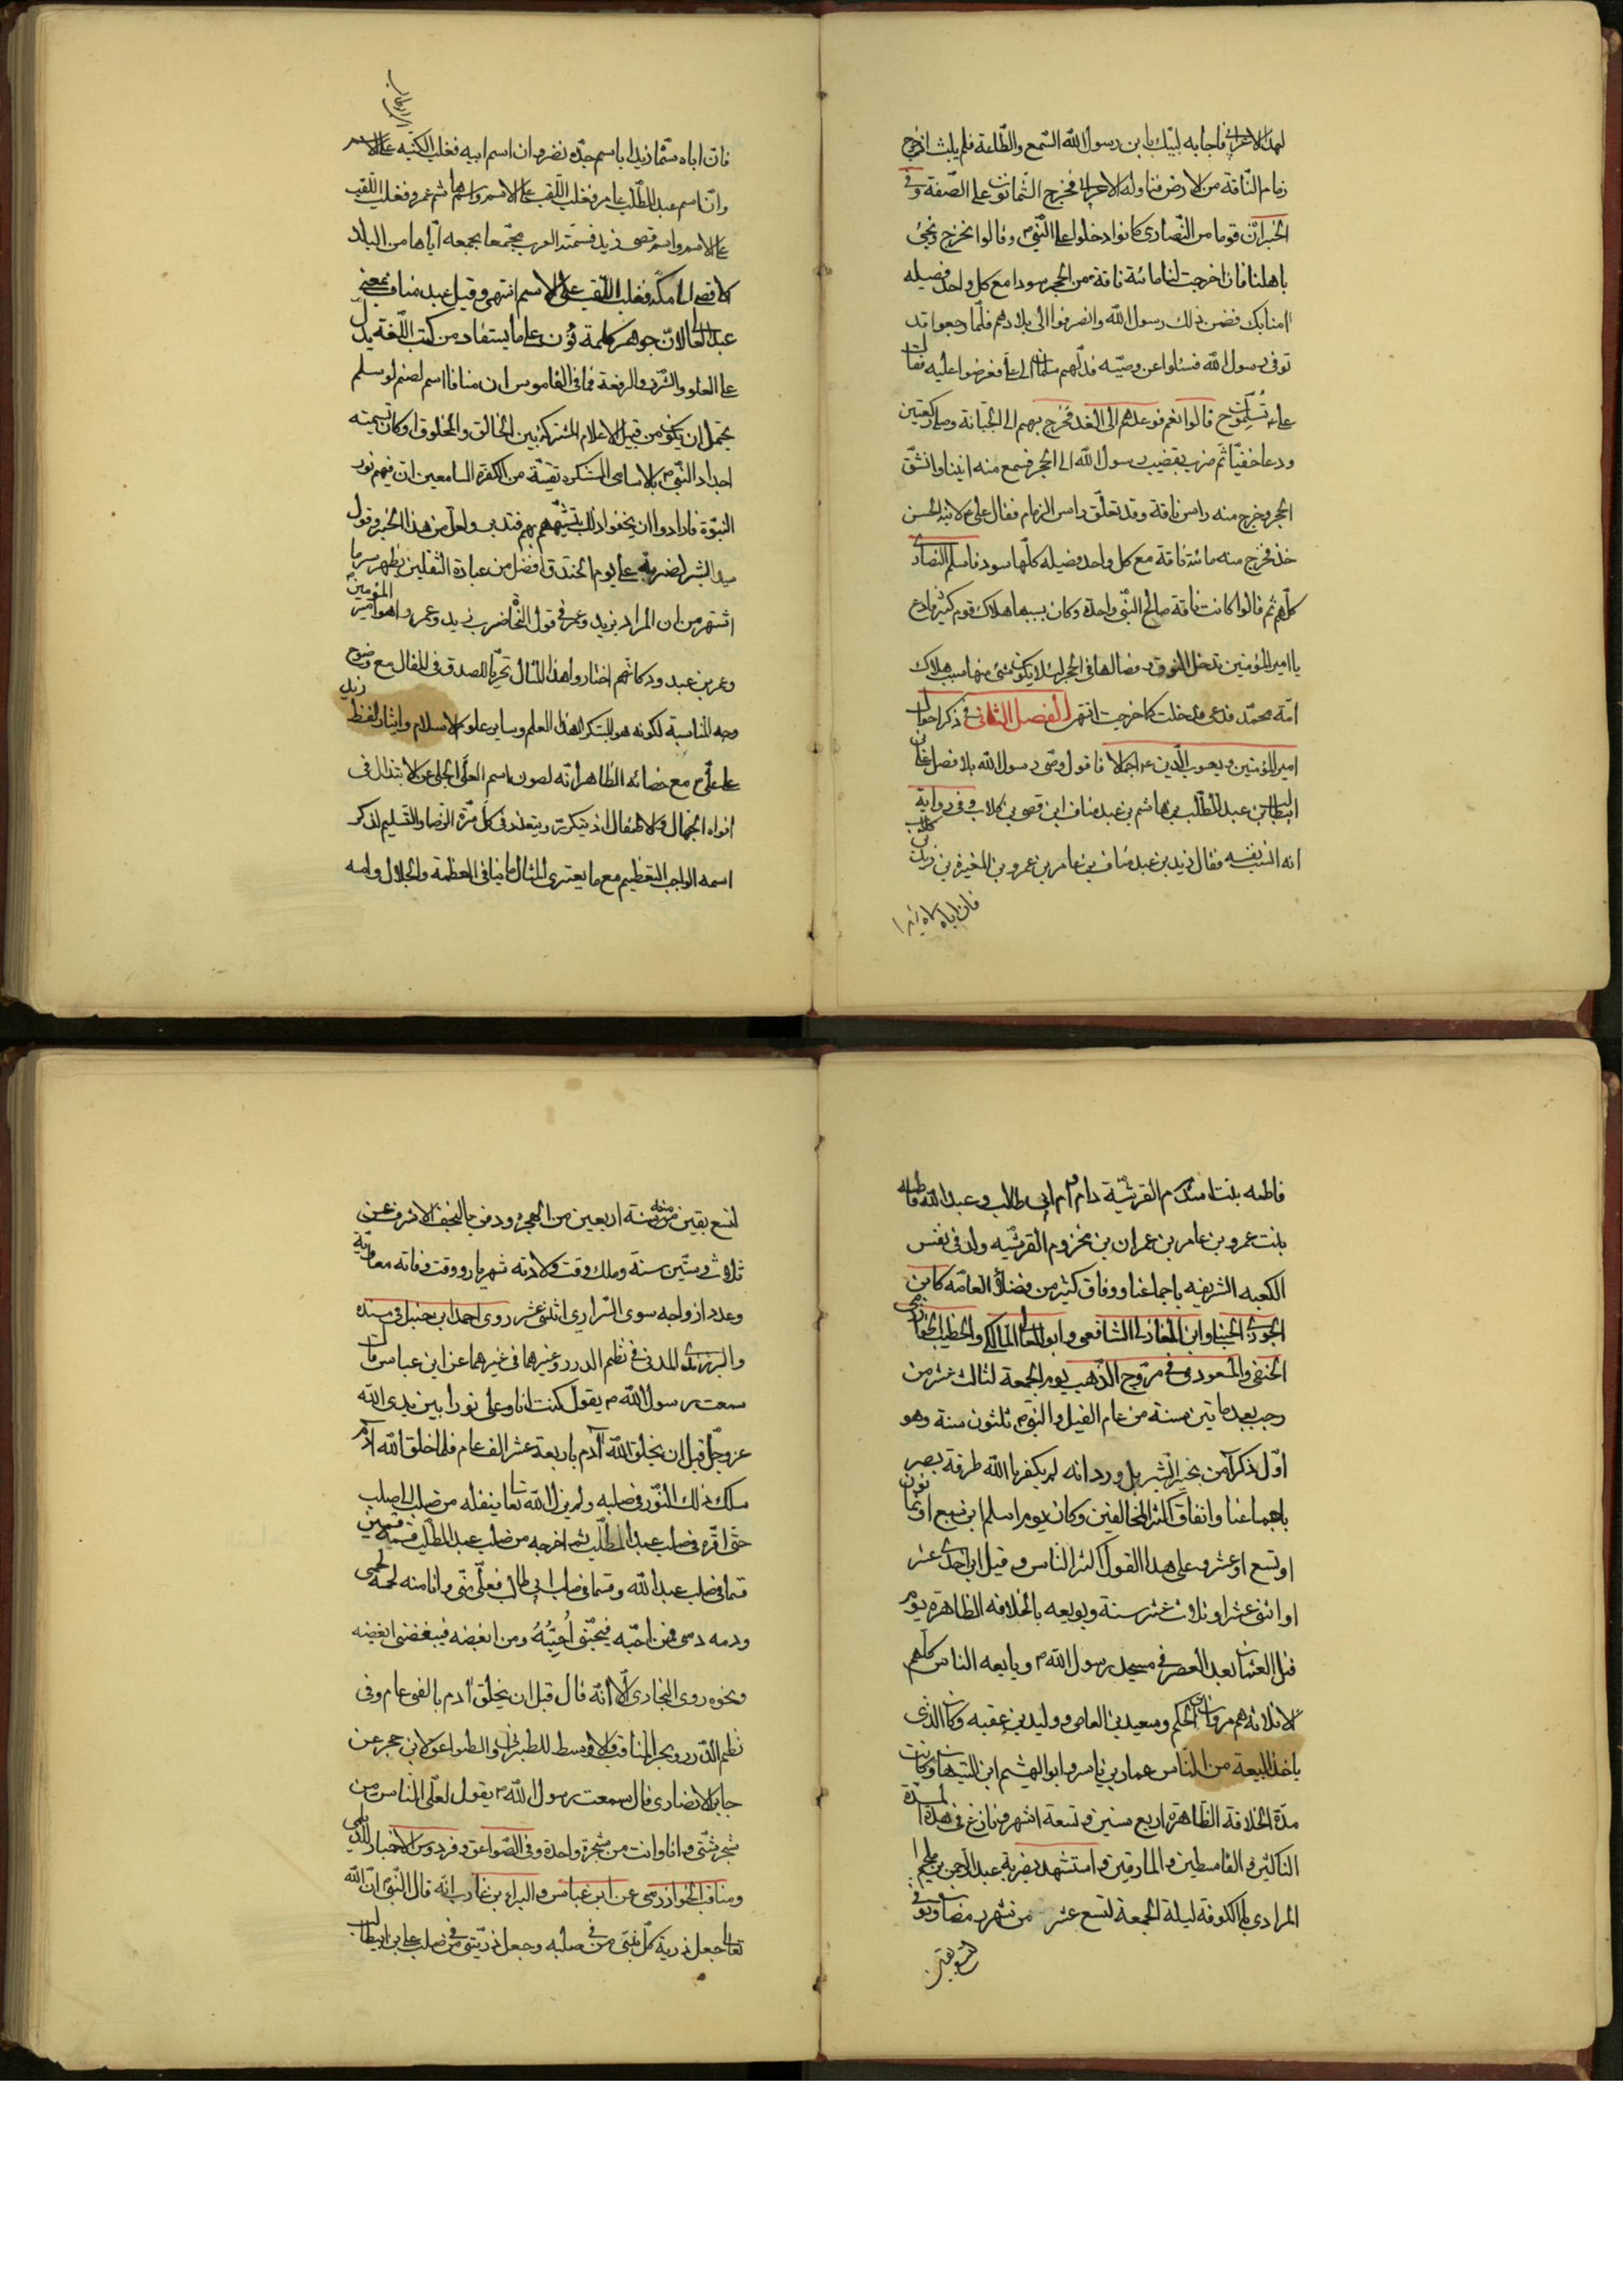 لهذا الاعرابي فاجابه لبيك يا بن رسول الله السمع والطاعة فلم يلبث اذ خرج
زمام الناقة من الارض فناوله الاعرابي فخرج الثمانون على الصفة وفي
الخبر ان قوما من النصارى كانوا دخلوا على النبي ص وقالوا نخرج ونجئ
باهلنا فان اخرجت لنا مائة ناقة من الحجر سودا مع كل واحد فصيله
امنا بك فضمن ذلك رسول الله وانصرفوا الى بلادهم فلما رجعوا قد
توفى رسول الله فسئلوا عن وصيه فدلهم سلمان الى على فعرضوا عليه فقال
على تسلمون ح قالوا نعم فوعدهم الى الغد فخرج بهم الى الجبانة وصلى ركعتين
ودعا خفيا ثم ضرب بقضيب رسول الله الى الحجر فسمع منه انينا وانشق
الحجر وخرج منه راس ناقة وقد تعلق راس الزمام فقال على ع لابنه الحسن
خذ فخرج منه مائة ناقة مع كل واحد فصيله كلها سود فاسلم النصارى
كلهم ثم قالوا كانت ناقة صالح النبي واحدة وكان بسببها هلاك قوم كثير فادع
يا امير المؤمنين تدخل النوق وفصالها في الحجر لئلا يكون شئ منها سبب هلاك
امة محمد فدعى فدخلت كما خرجت انتهى الفصل الثاني في ذكر احوال
امير المؤمنين ويعسوب الدين ع اجمالا فاقول وصى رسول الله بلا فصل على بن
ابيطالب بن عبد المطلب بن هاشم بن عبد مناف ابن قصى بن كلاب وفي رواية
انه انتسب نفسه فقال زيد بن عبد مناف بن عامر بن عمرو بن المغيرة بن زيد بن كلاب
فان اباه سماه زيدا
فان اباه سماه زيدا باسم جده نضر وان اسم ابيه فغلب الكنيه على الاسم
وان اسم عبد المطلب عامر فغلب اللقب على الاسم واسم هاشم عمرو فغلب اللقب
على الاسم واسم قصى زيد فسمته العرب مجمعا بجمعه اياها من البلد
الاقصى الى مكة فغلب اللقب على الاسم انتهى وقيل عبد مناف بمعنى
عبد العالي لان جوهر كلمة نوف على ما يستفاد من كتب اللغة يدل
على العلو والشرف والرفعة فما في القاموس ان منافا اسم لصنم لو سلم
يحتمل ان يكون من قبيل الاعلام المشتركة بين الخالق والمخلوق او كان تسميته
اجداد النبي ص بالاسامى المستنكره تقية من الكفرة السامعين ان فيهم نور
النبوة فارادوا ان يخفوا ذلك بتشبههم بهم فتدبر ولعل من هذا الخبر وقول
سيد البشر لضربة على يوم الخندق افضل من عبادة الثقلين يظهر سر ما
اشتهر من ان المراد بزيد وعمرو في قول النحاة ضرب زيد وعمرو اهو امير المؤمنين
وعمر بن عبد ود كانهم اختاروا هذا المثال تحريا للصدق في المقال مع وضوح
وجه المناسبة لكونه هو المبتكر لهذا العلم وساير علوم الاسلام وايثار لفظ زيد
على على ع مع خفائه الظاهر انه لصون اسم العلى الجلى عن الابتذال في
افواه الجهال والاطفال اذ يتكرر ويتعذر في كل مرة الرضا والتسليم لذكر
اسمه الواجب التعظيم مع ما يعترى المثال ما ينافي العظمة والجلال وامه
فاطمه بنت اسد القرشية وام ام ابي طالب وعبد الله فاطمه
بنت عمرو بن عامر بن عمران بن مخزوم القرشيه ولد في نفس
الكعبه الشريفه باجماعنا ووفاق كثير من فضلاء العامه كابن
الجوزي الحنبلي وابن المغازلي الشافعى وابو المعالي المالكي والخطيب الخوارزمي
الحنفى والمسعودى في مروج الذهب يوم الجمعة لثالث عشر من
رجب بعد ما تين سنة من عام الفيل والنبي ص ثلثون سنة وهو
اول ذكر امن بخير البشر بل ورد انه لم يكفر بالله طرفة بصر
باجماعنا واتفاق اكثر المخالفين وكان يوم اسلم ابن سبع او ثمان
او تسع او عشر وعلى هذا القول اكثر الناس وقيل ابن احدى عشر
او اثنى عشر او ثلاث عشر سنة وبويعه بالخلافه الظاهرة يوم
قتل العثمان بعد العصر في مسجد رسول الله ص وبايعه الناس كلهم
الا ثلاثة هم مروان الحكم وسعيد بن العاص ووليد بن عقبه وكان الذى
ياخذ البيعة من الناس عمار بن ياسر وابو الهشيم ابن التيهان وكانت
مدة الخلافة الظاهرة اربع سنين وتسعة اشهر ونازع في هذه المدة
الناكثين والقاسطين والمارقين واستشهد بضربة عبد الرحمن بن ملجم
المرادى بالكوفة ليلة الجمعة لتسع عشر من شهر رمضان وتوفي
لتسع بقين
لتسع بقين منه سنة اربعين من الهجرة ودفن بالنجف الاشرف عن
ثلاث وستين سنة وملك وقت ولادته شهريار ووقت وفاته معاوية
وعدد ازواجه سوى السراري اثنى عشر روى احمد ابن حنبل في مسنده
والزرندى المدنى في نظم الدرر وغيرهما في غيرهما عن ابن عباس قال
سمعت رسول الله ص يقول كنت انا وعلى نورا بين يدى الله
عز وجل قبل ان يخلق الله آدم باربعة عشر الف عام فلما خلق الله آدم
سلك ذلك النور في صلبه ولم يزل الله تعا ينقله من صلب الى صلب
حتى اقره في صلب عبد المطلب ثم اخرجه من صلب عبد المطلب فقسمه قسمين
قسما في صلب عبد الله وقسما في صلب ابي طالب فعلي منى وانا منه لحمه لحمى
ودمه دمى فمن احبه فبحبى أُحِبُّهُ ومن ابغضه فببغضى ابغضه
ونحوه روى البخارى الا انه قال قبل ان يخلق آدم بالفى عام وفى
نظم الدرر وبحر المناقب والاوسط للطبراني والصواعق لابن حجر عن
جابر الانصارى قال سمعت رسول الله ص يقول لعلى الناس من
شجر شتى وانا وانت من شجرة واحدة وفي الصواعق وفردوس الاخبار للديلمي
ومناقب الخوارزمى عن ابن عباس والبراء بن عازب انه قال النبي ان الله
تعالى جعل ذرية كل نبي من في صلبه وجعل ذريتى في من صلب على بن ابيطالب